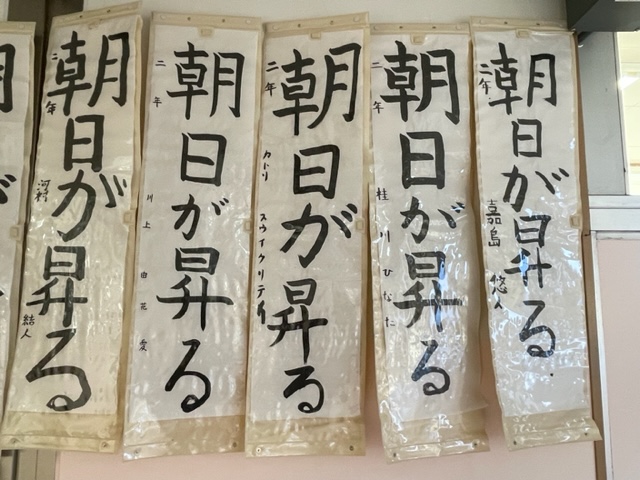 朝日が昇る
二年 嘉島 悠人
朝日が昇る
二年 桂川ひなた
朝日が昇る
二年 カドリ スウイクリテイ
朝日が昇る
二年 川上由花愛
朝日が昇る
二年 河村 結人